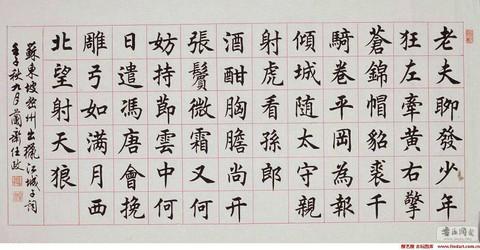 老夫聊發少年
狂左牽黃右擎
蒼錦帽貂裘千
騎卷平岡為報
傾城隨太守親
射虎看孫郎
酒酣胸膽尚開
張鬢微霜又何
妨持節雲中何
日遣馮唐會挽
雕弓如滿月西
北望射天狼
蘇東坡密州出獵江城子詞
壬子秋九月蘭齋任政
www.findart.com.cn